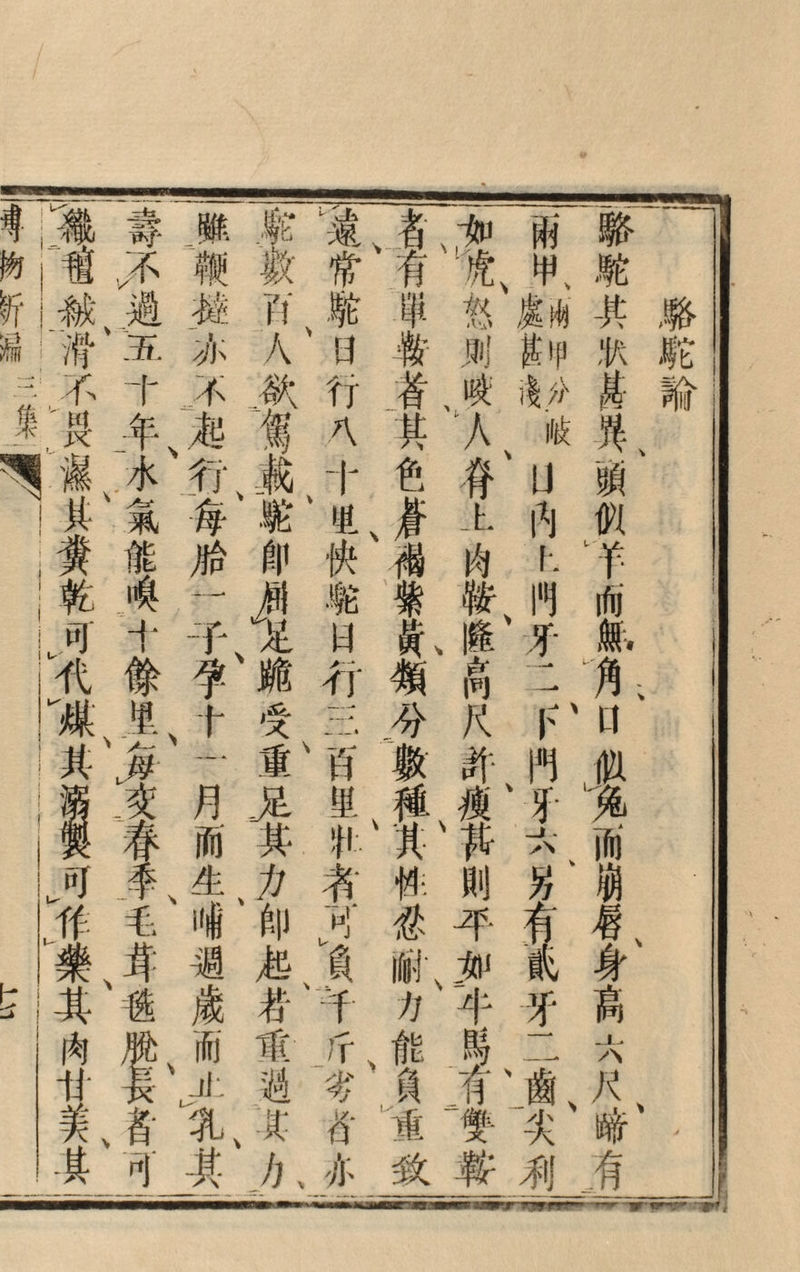 駱駝論
駱駝其狀甚異頭似羊而無角口似兔而崩唇身高六尺蹄有
兩甲兩甲分岐處甚淺口內上門牙二下門牙六另有貳牙二齒尖利
如虎怒則咬人脊上肉鞍隆高尺許瘦甚則平如牛馬有雙鞍
者有單鞍者其色蒼褐紫黃類分數種其性忍耐力能負重致
遠常駝日行八十里快駝日行三百里壯者可負千斤劣者亦
駝數百人欲駕載駝即屈足跪受重足其力即起若重過其力
雖鞭撻亦不起行每胎一子孕十一月而生哺過歲而止乳其
壽不過五十年水氣能嗅十餘里每交春季毛茸毨脫長者可
織氊絨滑不畏濕其糞乾可代煤其溺製可作藥其肉甘美其
博物新漏 三集
七